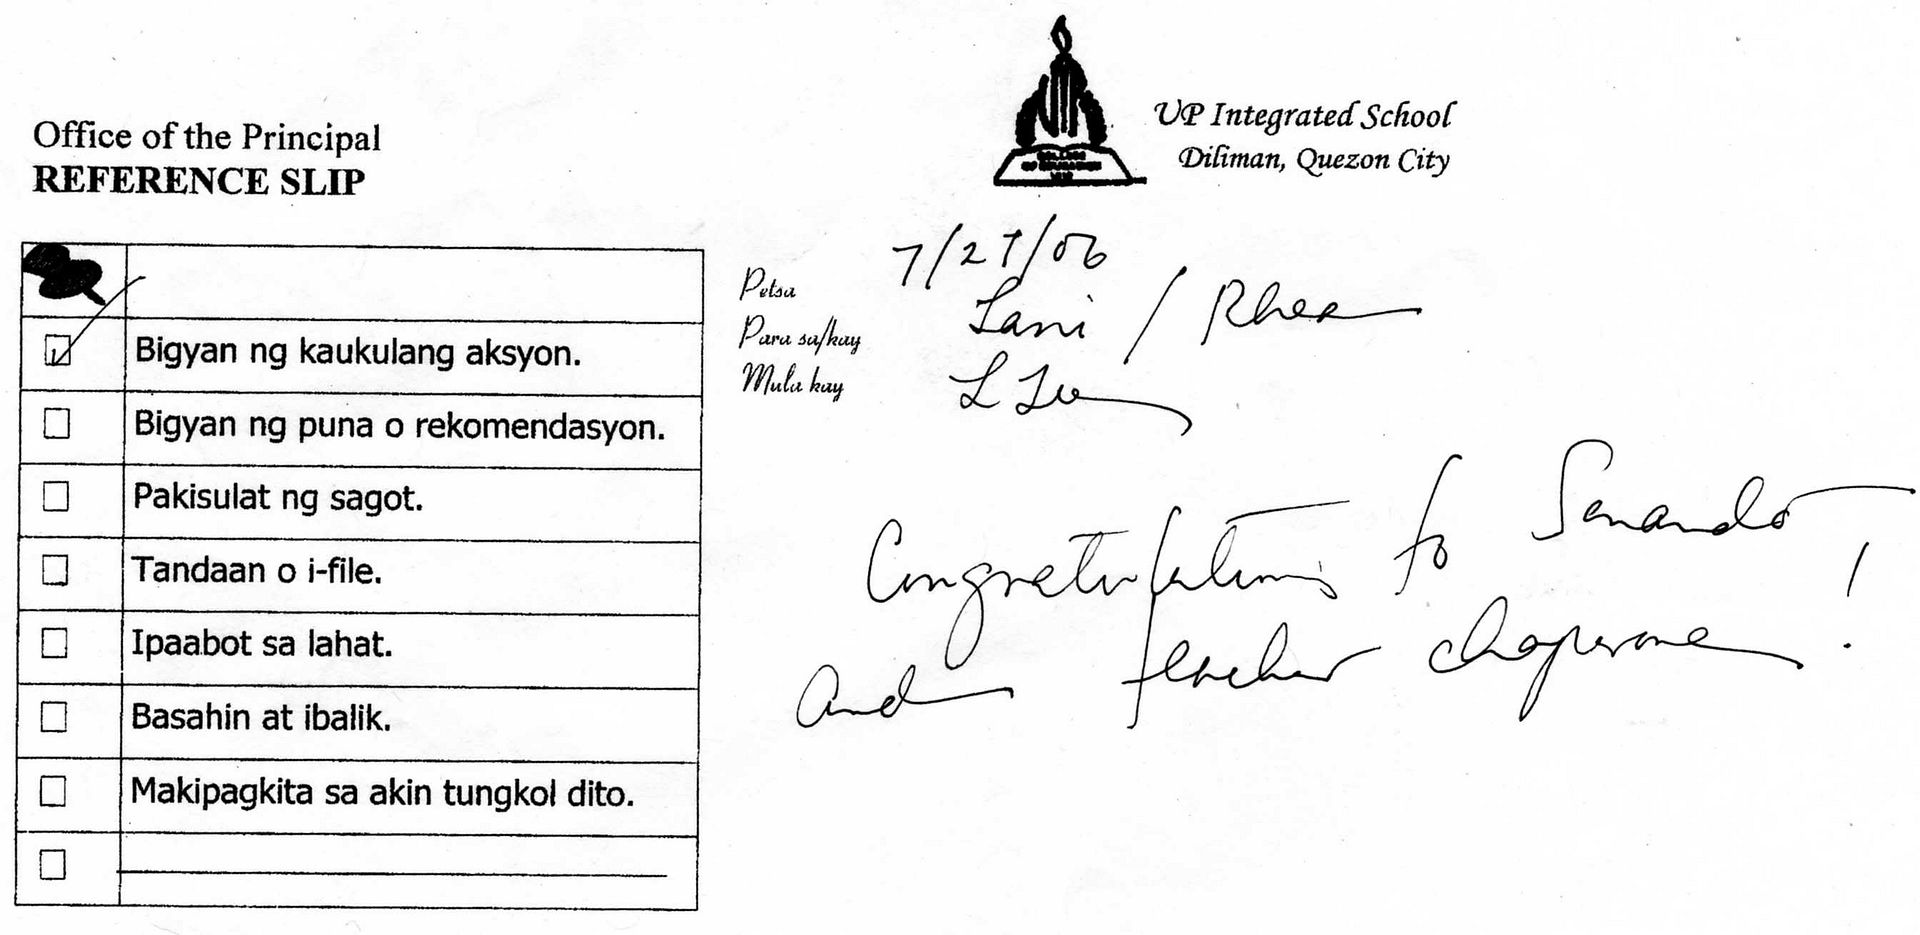 Office of the Principal
REFERENCE SLIP
UP Integrated School
Diliman, Quezon City
Bigyan ng kaukulang aksyon.
Bigyan ng puna o rekomendasyon.
Pakisulat ng sagot.
Tandaan o i-file.
Ipaabot sa lahat.
Basahin at ibalik.
Makipagkita sa akin tungkol dito.
Petsa 7/27/06
Para sa/kay Lani / Rhea
Mula kay
Congratulations to Senando
and teacher chaperone!